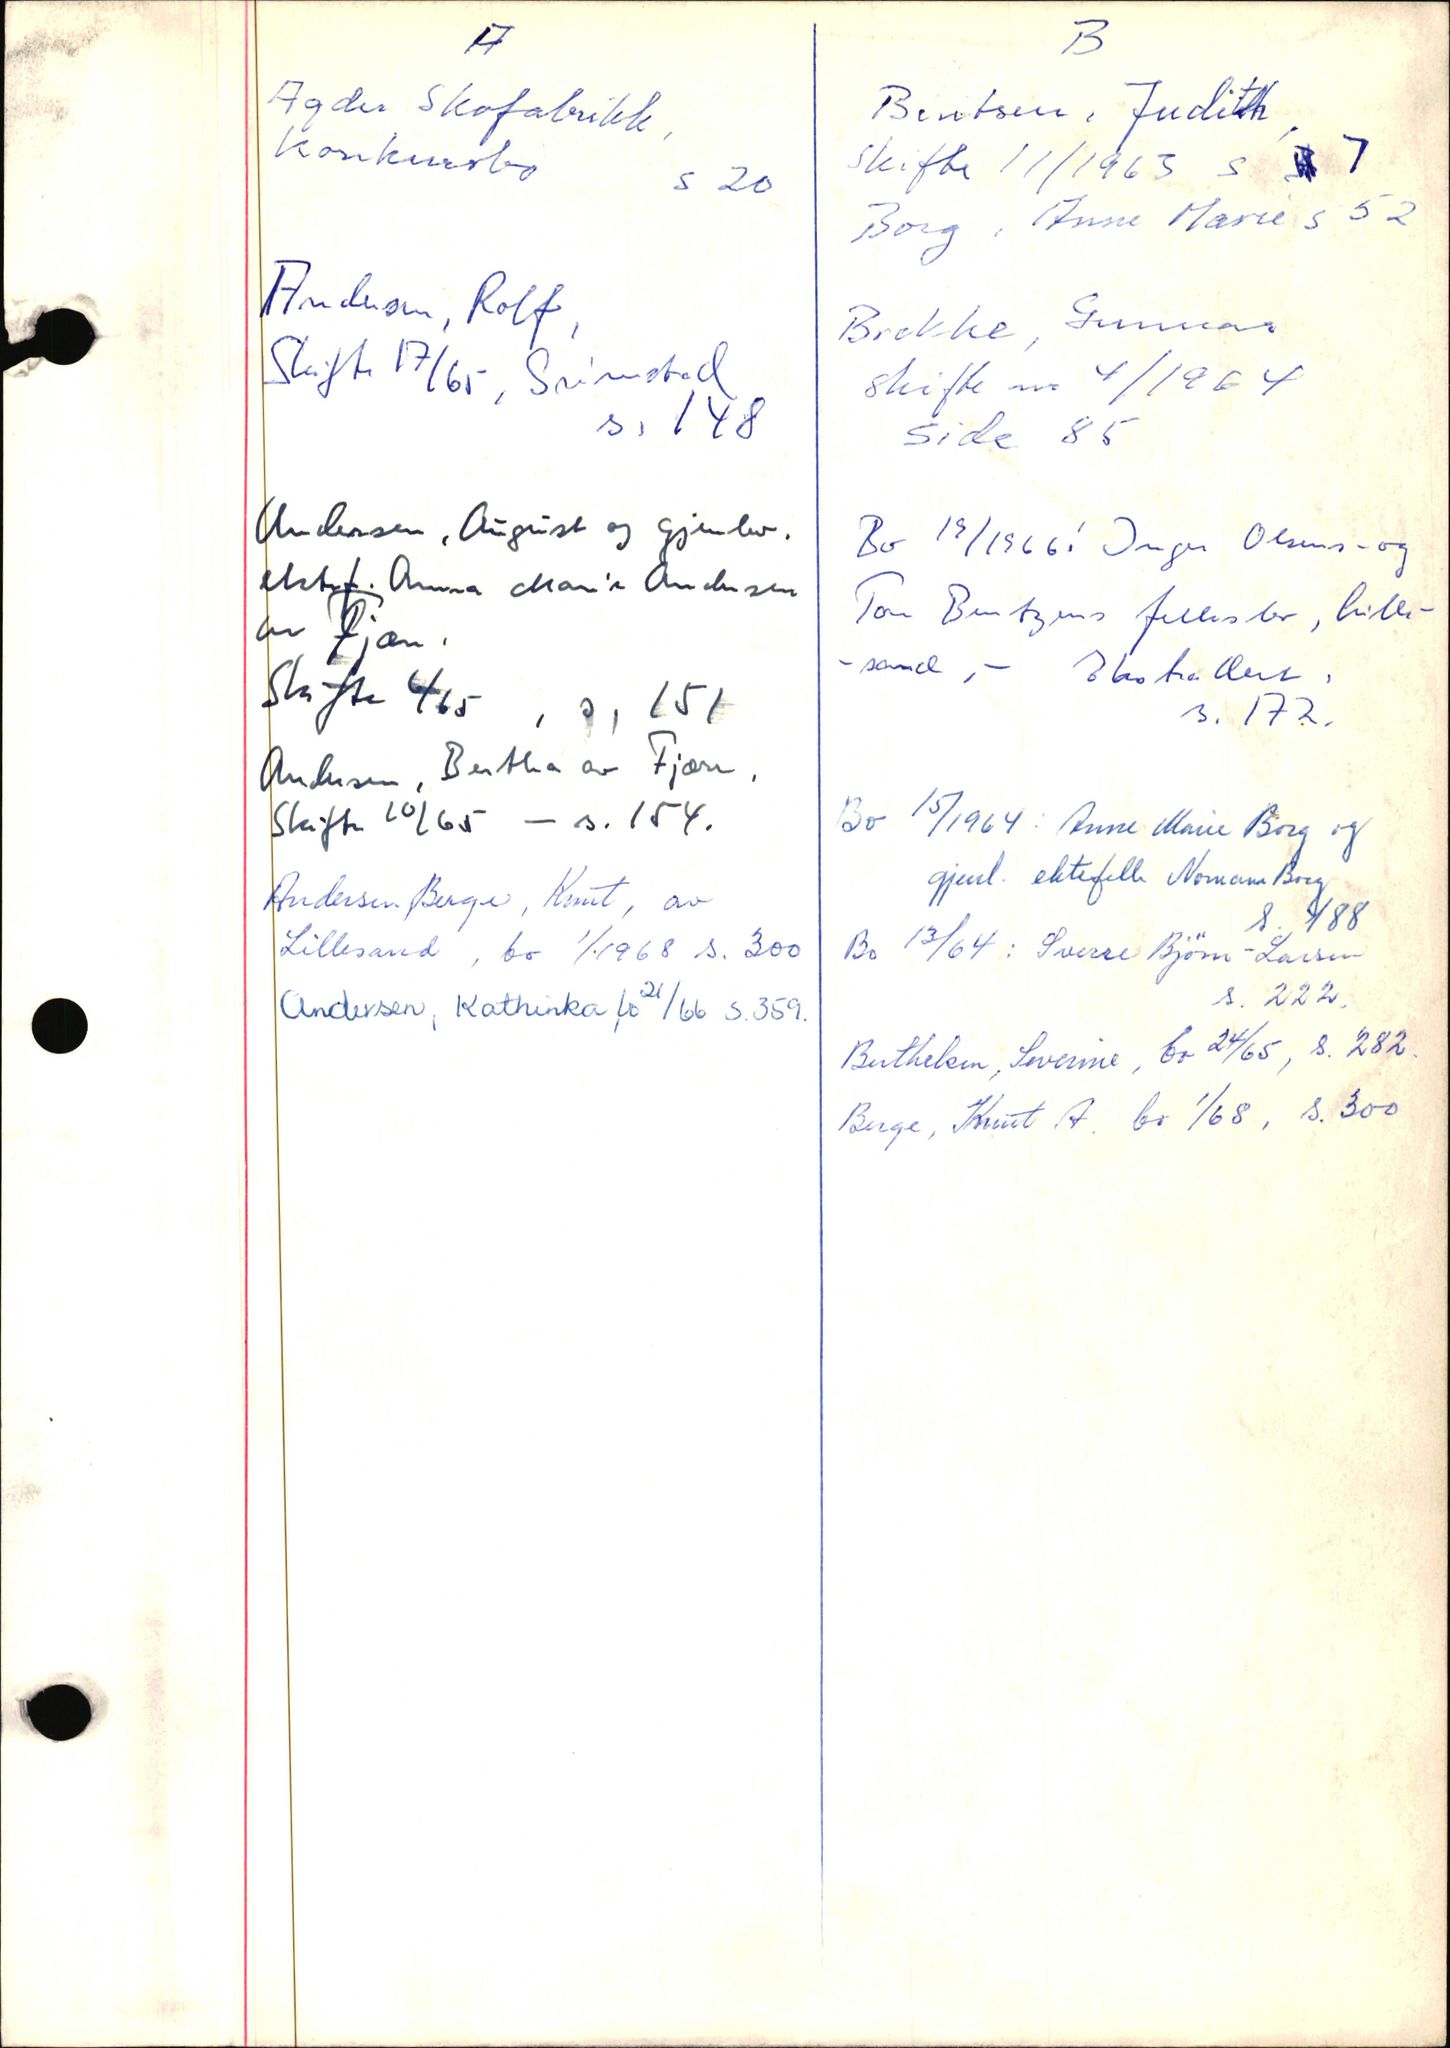 A
Agder Skofabrikk,
Konkursbo s 20
Andersen, Rolf,
Skifte 17/65, Grimstad
s. 148
Andersen, August og gjenlev.
ektef. Anna Marie Andersen
av Fjære.
Skifte 4/65, s, 151
Andersen, Bertha av Fjære.
Skifte 10/65 — s. 154.
Andersen Berge, Knut, av
Lillesand, bo 1/1968 s. 300
Andersen, Kathinka, bo 21/66 s. 359.
B
Bentsen, Judith,
skifte 11/1963 s 7
Borg, Anne Marie s 52
Brekke, Gunnar
skifte nr 4/1964
side 85
Bo 19/1966: Inger Olsens - og
Tom Bentzens fellesbo, Lille-
-sand, - Ekstradert.
s. 172.
Bo 15/1964: Anne Marie Borg og
gjenl. ektefelle Normann Borg
s. 188
Bo 13/64: Sverre Bjørn-Larsen
s. 222.
Berthelsen, Severine, bo 24/65, s. 282.
Berge, Knut A. bo 1/68, s. 300